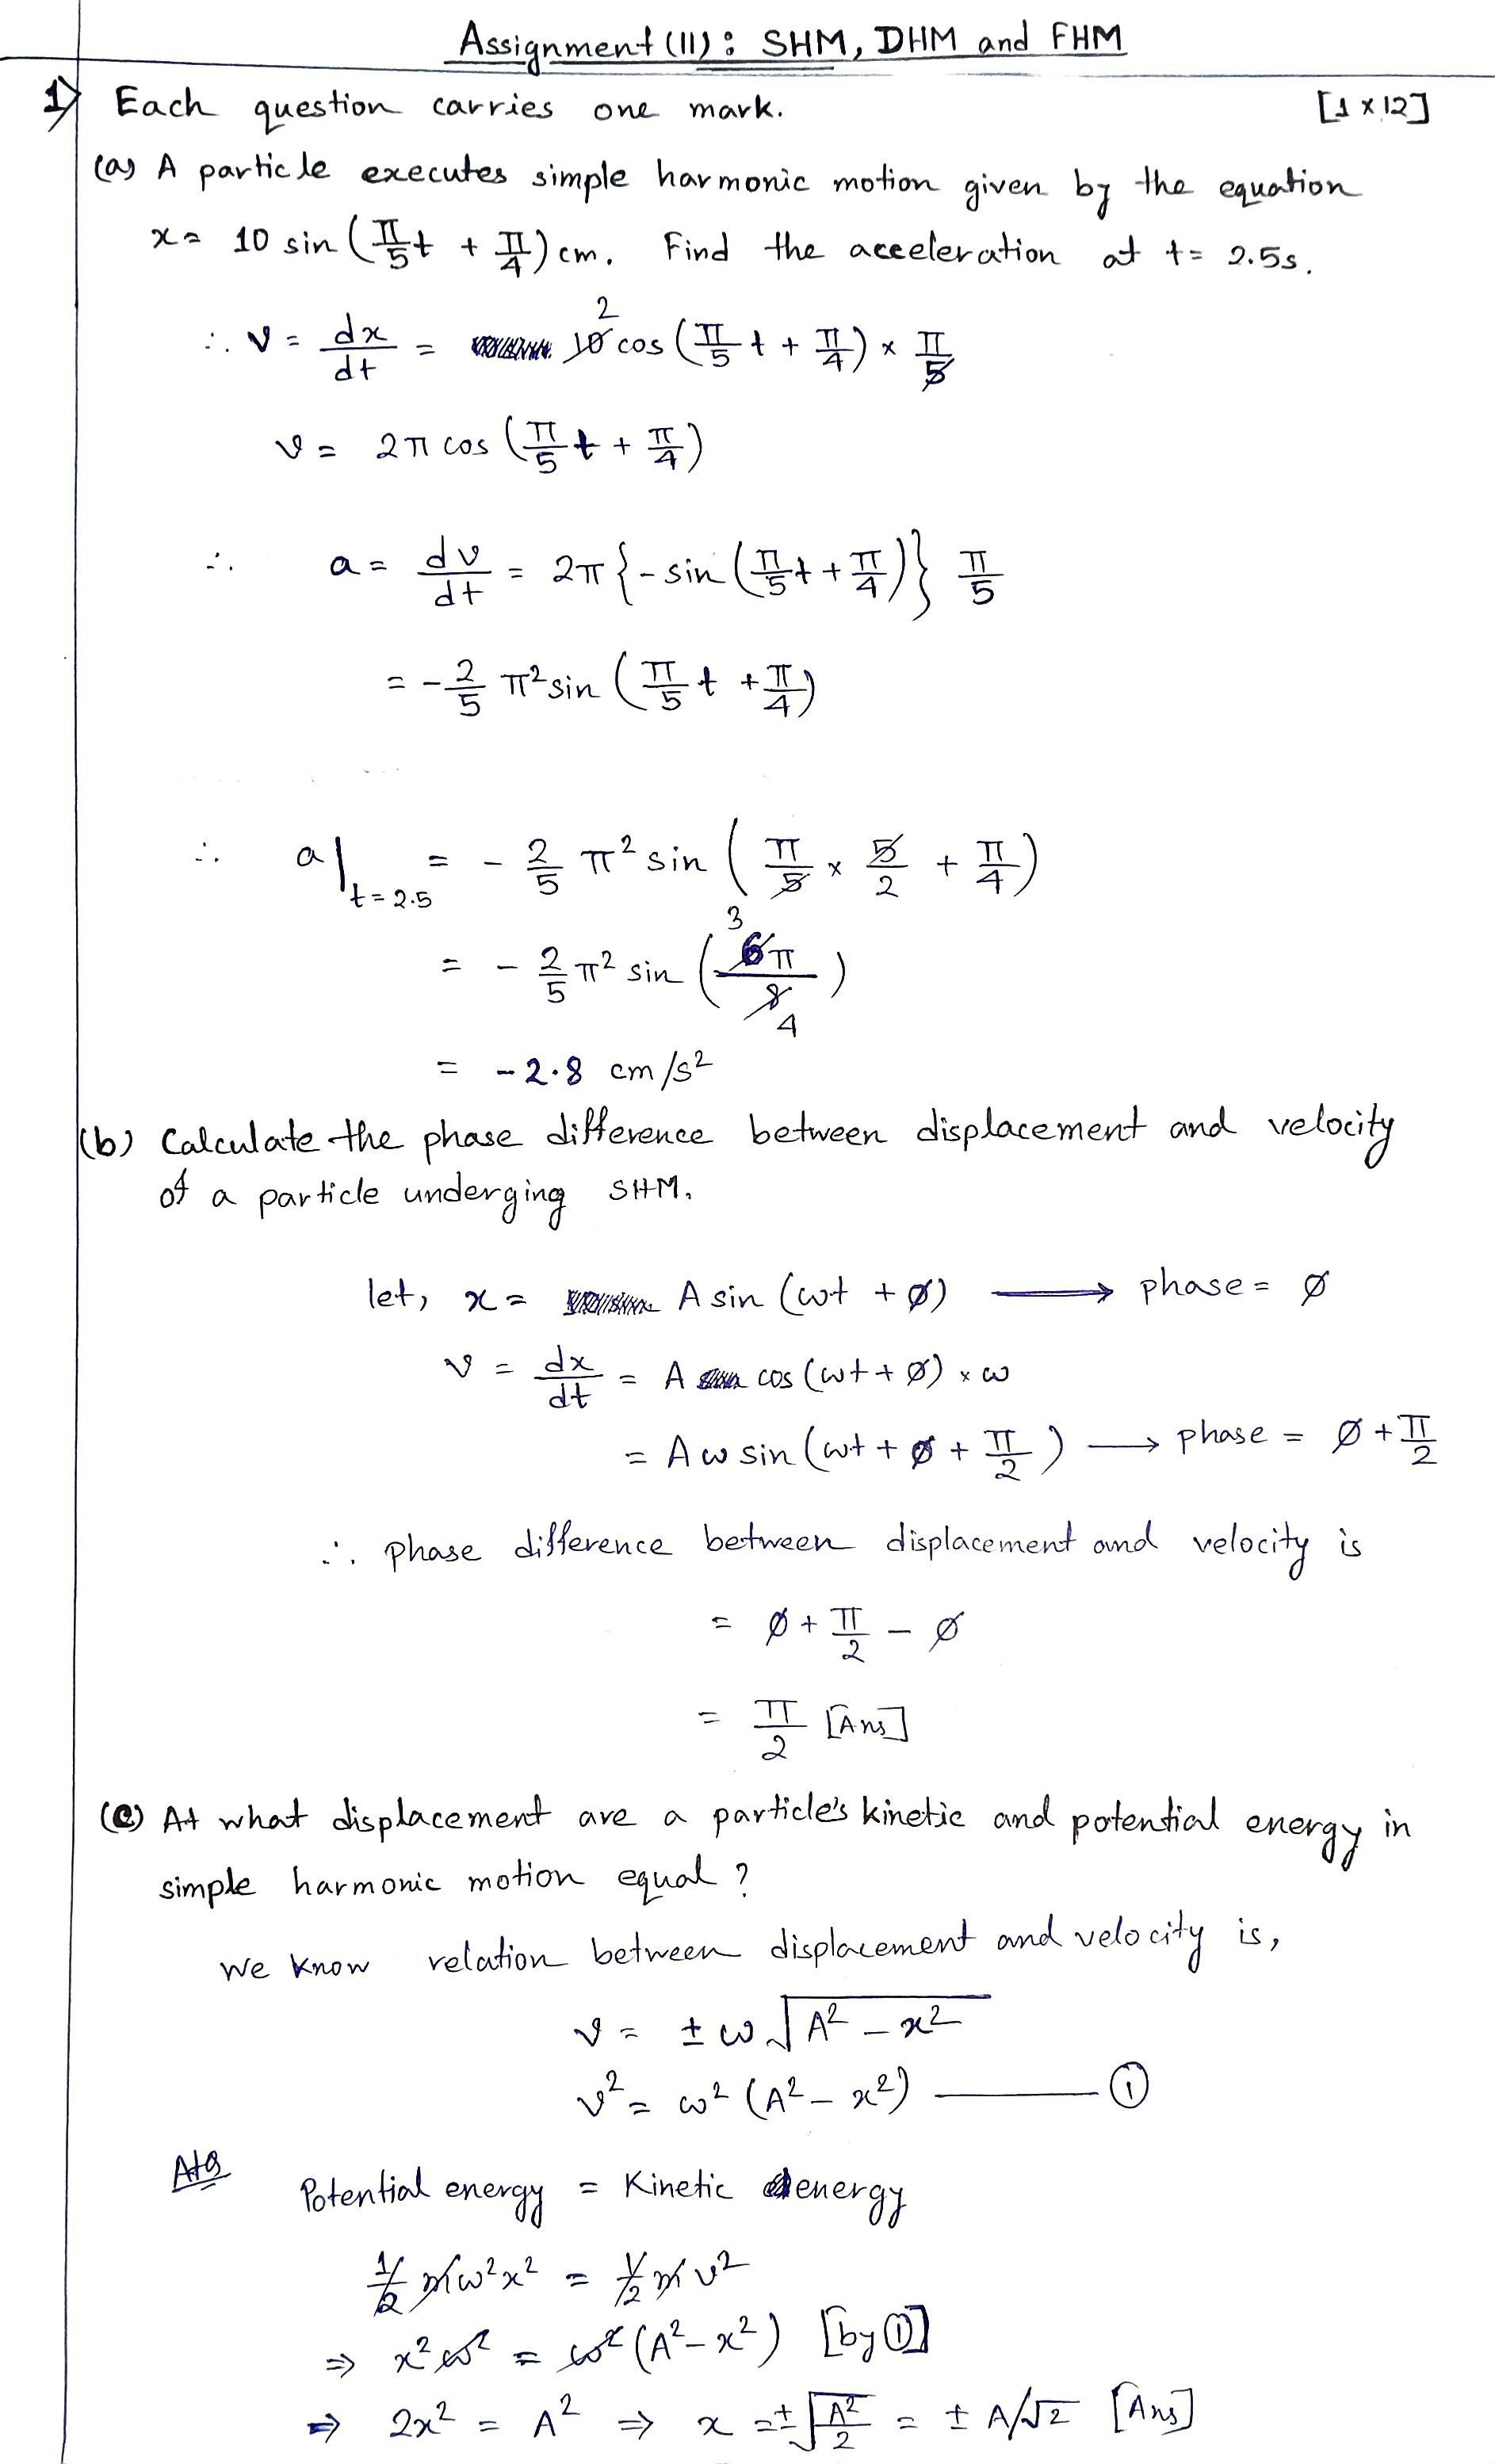 Assignment (II): SHM, DHM and FHM
1) Each question carries one mark. [1 × 12]
(a) A particle executes simple harmonic motion given by the equation
x = 10 sin (π/5 t + π/4) cm. Find the acceleration at t = 2.5s.
∴ v = dx/dt = 10 2 cos (π/5 t + π/4) × π/5
v = 2π cos (π/5 t + π/4)
∴ a = dv/dt = 2π {- sin (π/5 t + π/4)} π/5
= - 2/5 π² sin (π/5 t + π/4)
∴ a|t=2.5 = - 2/5 π² sin (π/5 × 5/2 + π/4)
= - 2/5 π² sin (6π/8 3 4)
= - 2.8 cm/s²
(b) Calculate the phase difference between displacement and velocity
of a particle underging SHM.
let, x = A sin (ωt + ø) ⟶ phase = ø
v = dx/dt = A cos (ωt + ø) × ω
= A ω sin (ωt + ø + π/2) ⟶ phase = ø + π/2
∴ phase difference between displacement and velocity is
= ø + π/2 - ø
= π/2 [Ans]
(c) At what displacement are a particle's kinetic and potential energy in
simple harmonic motion equal?
We know relation between displacement and velocity is,
v = ± ω √(A² - x²)
v² = ω² (A² - x²) ——— ①
AtQ Potential energy = Kinetic energy
1/2 mω²x² = 1/2 m v²
⇒ x² ω² = ω² (A² - x²) [by ①]
⇒ 2x² = A² ⇒ x = ± √(A²/2) = ± A/√2 [Ans]